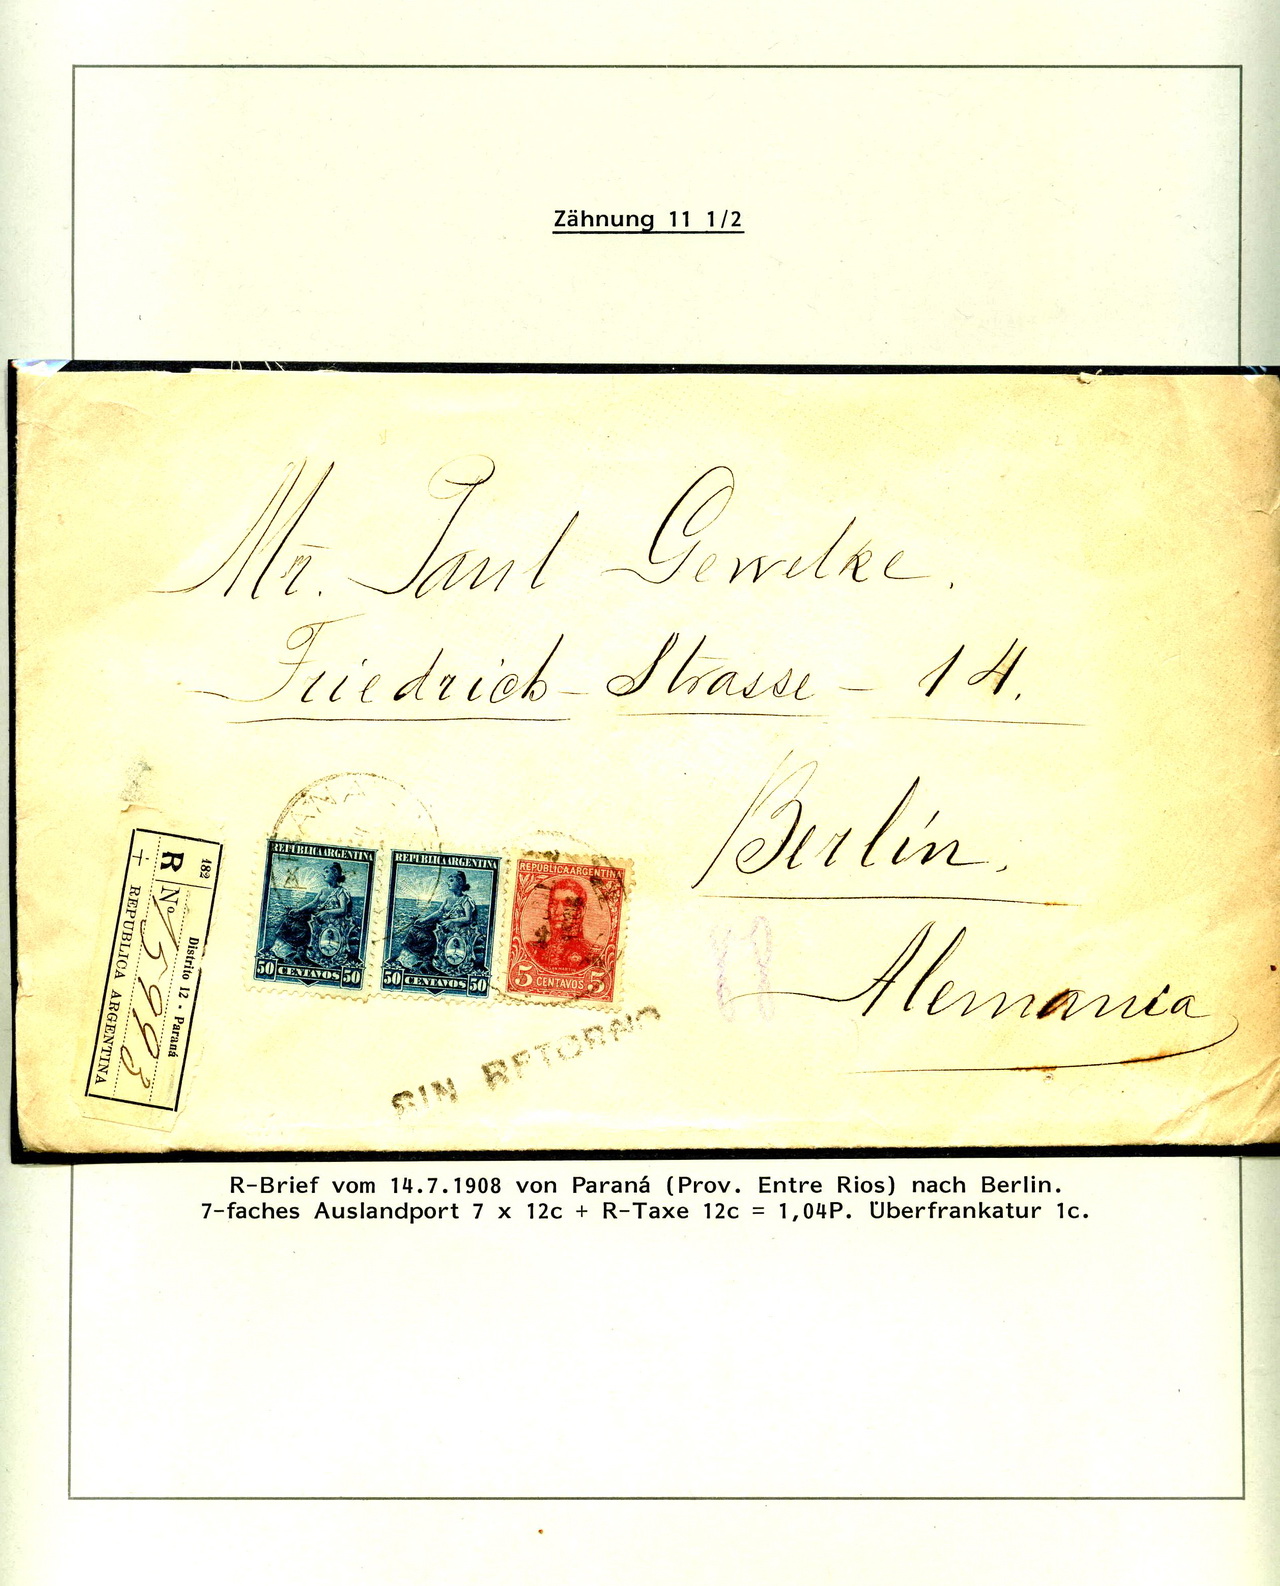 Zähnung 11 1/2
Mr. Paul Gewelke.
Friedrich-Strasse-14.
Berlin.
Alemania
182
R Nº 5993
Distrito 12 - Paraná
REPUBLICA ARGENTINA
REPUBLICA ARGENTINA
50 CENTAVOS 50
REPUBLICA ARGENTINA
50 CENTAVOS 50
REPUBLICA ARGENTINA
5 CENTAVOS 5
SIN RETORNO
R-Brief vom 14.7.1908 von Paraná (Prov. Entre Rios) nach Berlin.
7-faches Auslandport 7 x 12c + R-Taxe 12c = 1,04P. Überfrankatur 1c.